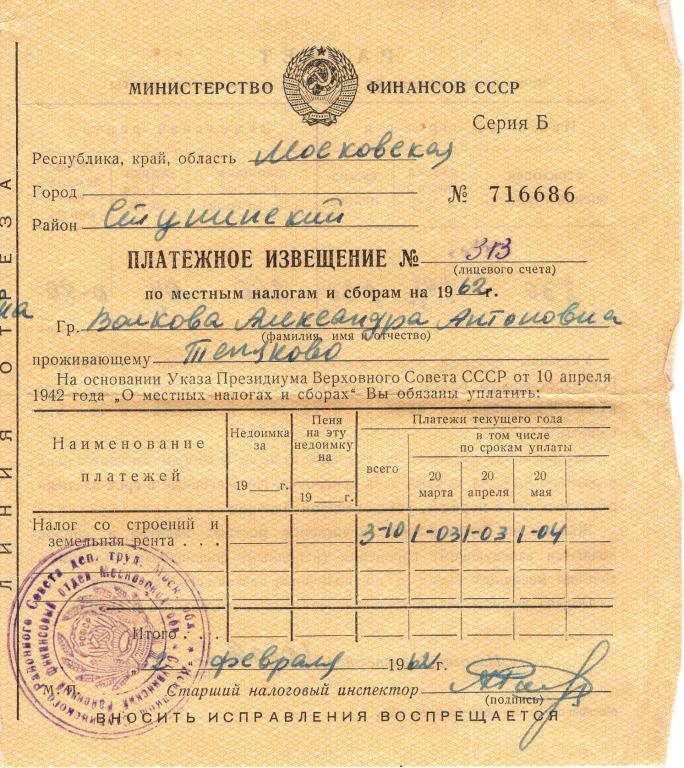 МИНИСТЕРСТВО ФИНАНСОВ СССР
Серия Б
Республика, край, область Московская
Город
№ 716686
Район Ступинский
ПЛАТЕЖНОЕ ИЗВЕЩЕНИЕ № 313
(лицевого счета)
по местным налогам и сборам на 1962г.
Гр. Волкова Александра Антоновна
(фамилия, имя и отчество)
проживающему
На основании Указа Президиума Верховного Совета СССР от 10 апреля
1942 года „О местных налогах и сборах“ Вы обязаны уплатить:
Наименование платежей
Недоимка за 19__г.
Пеня на эту недоимку на 19__г.
Платежи текущего года
всего
в том числе по срокам уплаты
20 марта
20 апреля
20 мая
Налог со строений и
земельная рента . . . 3-10 1-03 1-03 1-04
Итого . . .
2 февраля 1962г.
М. П. Старший налоговый инспектор
(подпись)
ВНОСИТЬ ИСПРАВЛЕНИЯ ВОСПРЕЩАЕТСЯ
ЛИНИЯ ОТРЕЗА